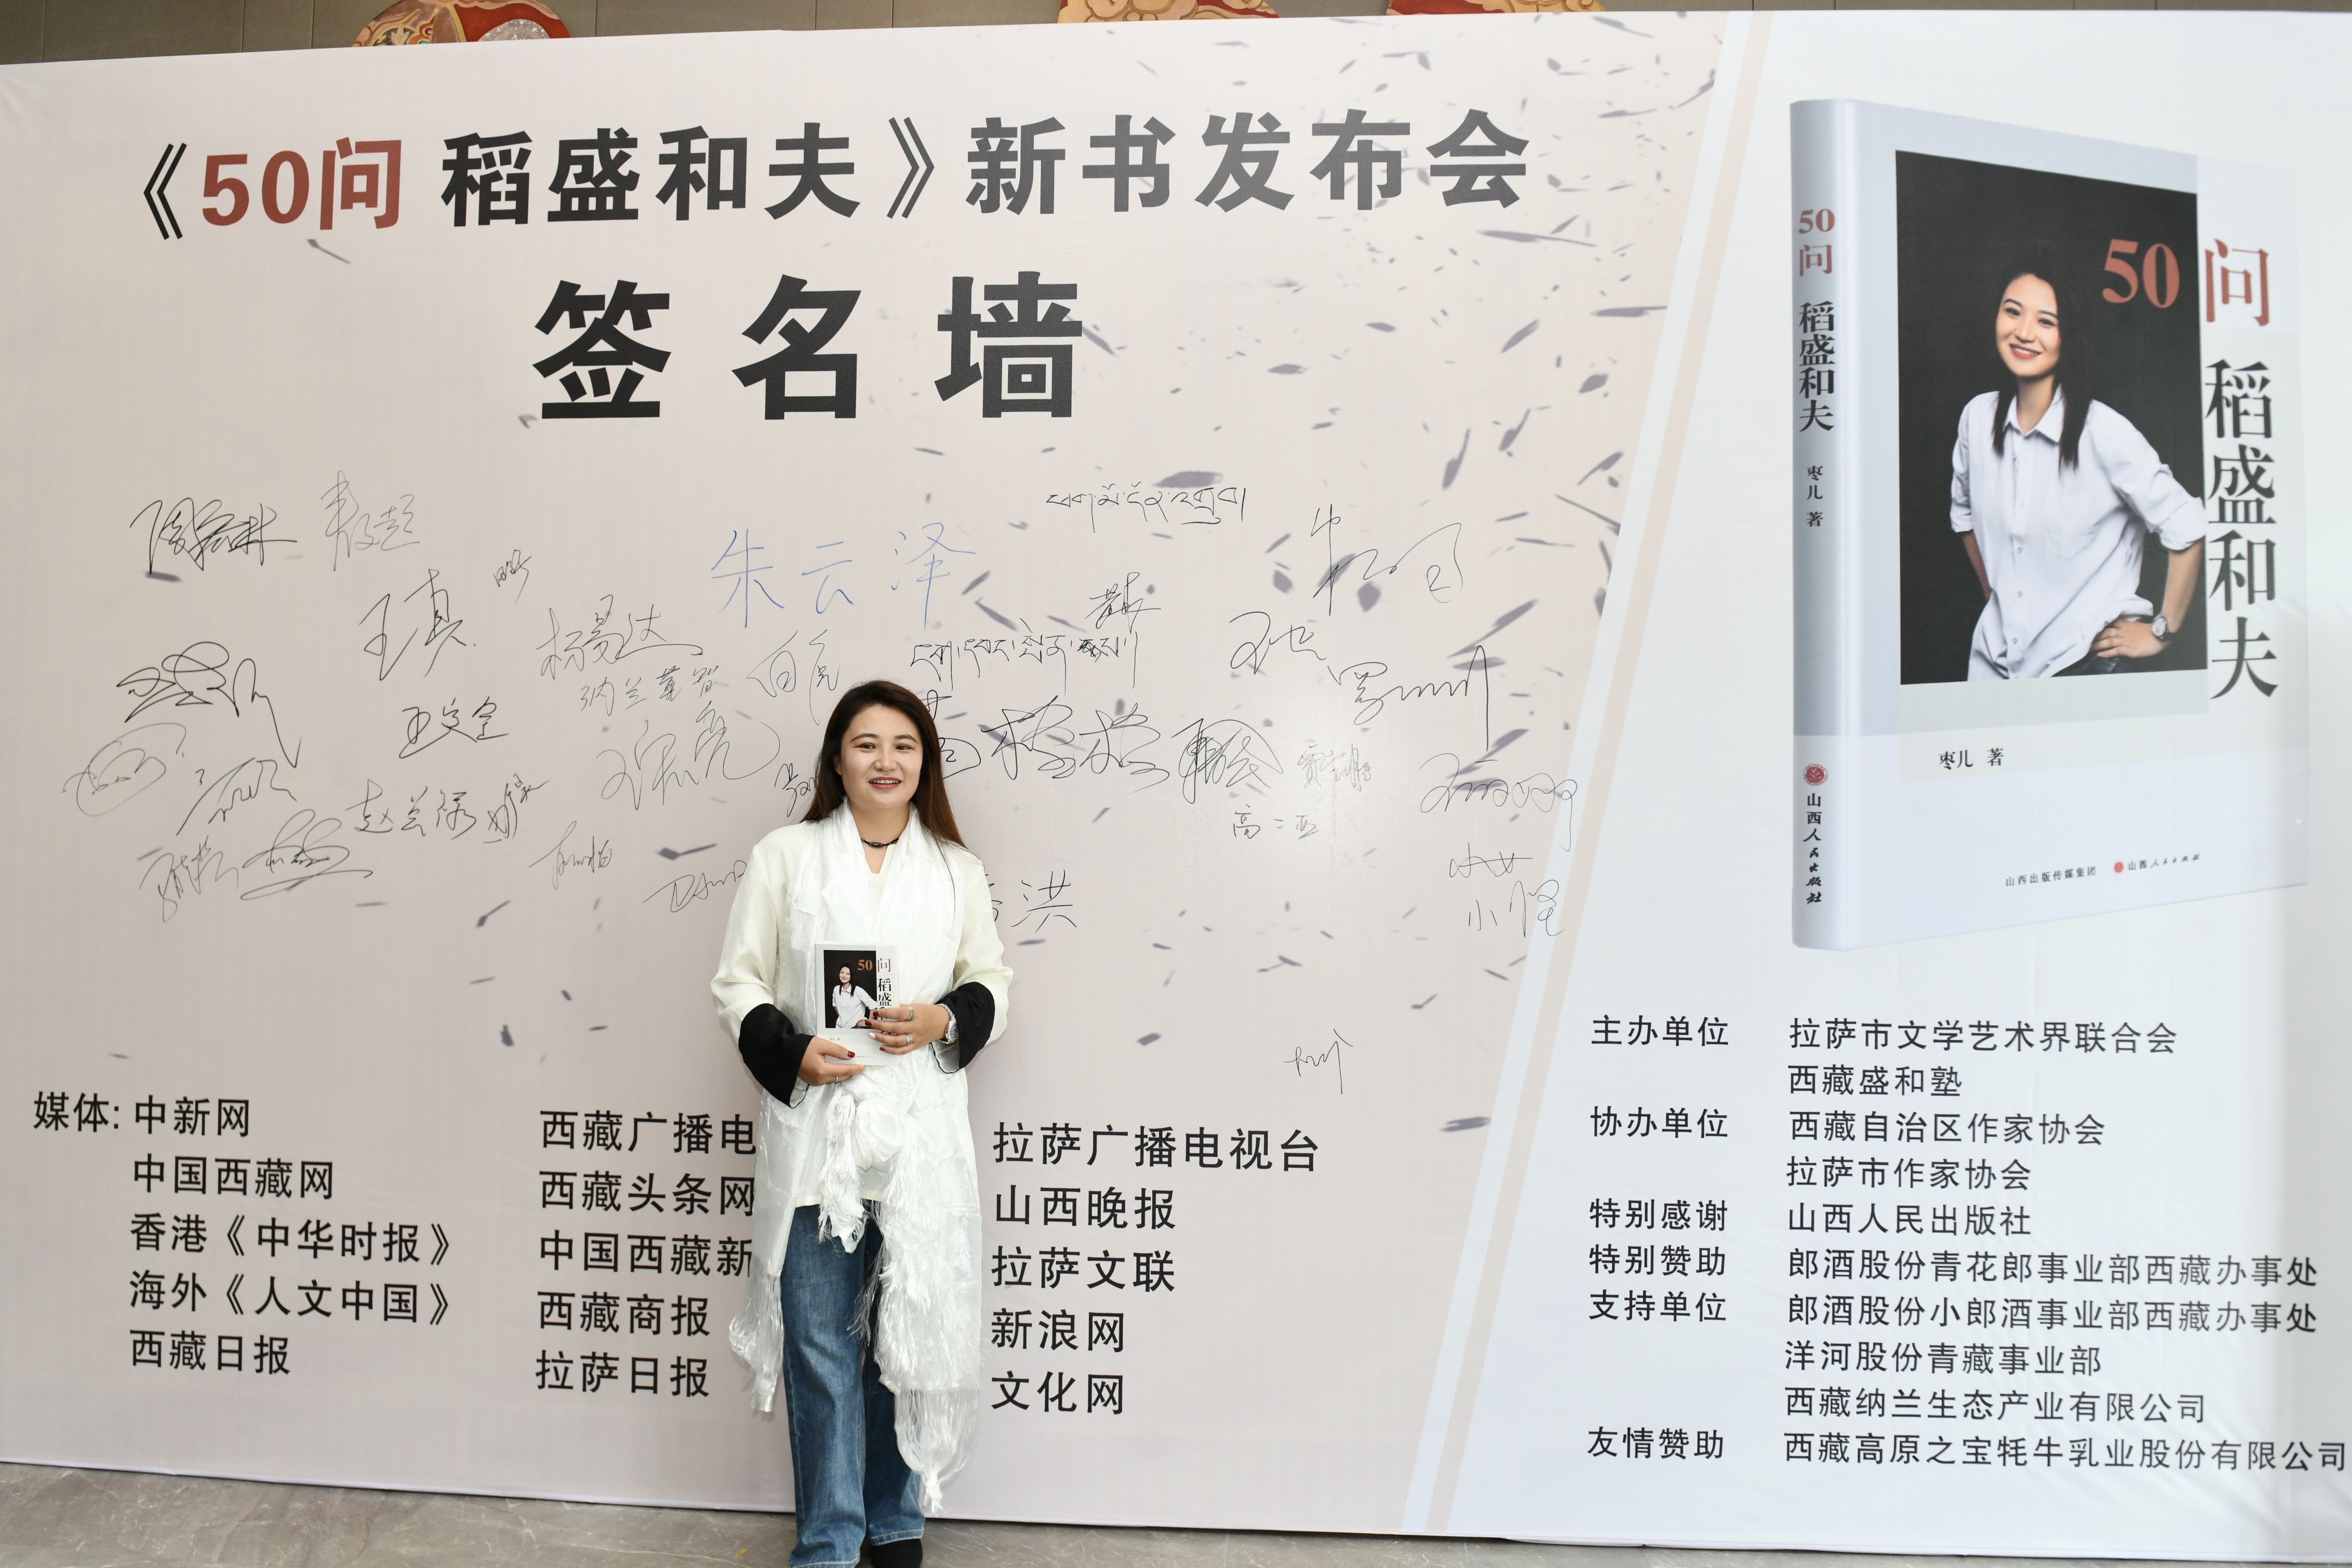 《50问 稻盛和夫》新书发布会
签名墙
朱云泽
王真
杨易达
纳兰董智
白虎
王文全
赵兰溪
高二亚
小怪
洪
媒体: 中新网
中国西藏网
香港《中华时报》
海外《人文中国》
西藏日报
西藏广播电
西藏头条网
中国西藏新
西藏商报
拉萨日报
拉萨广播电视台
山西晚报
拉萨文联
新浪网
文化网
50
问
稻盛和夫
枣儿 著
山西人民出版社
50问
稻盛和夫
枣儿 著
山西出版传媒集团 山西人民出版社
主办单位 拉萨市文学艺术界联合会
西藏盛和塾
协办单位 西藏自治区作家协会
拉萨市作家协会
特别感谢 山西人民出版社
特别赞助 郎酒股份青花郎事业部西藏办事处
支持单位 郎酒股份小郎酒事业部西藏办事处
洋河股份青藏事业部
西藏纳兰生态产业有限公司
友情赞助 西藏高原之宝牦牛乳业股份有限公司
50问
稻盛